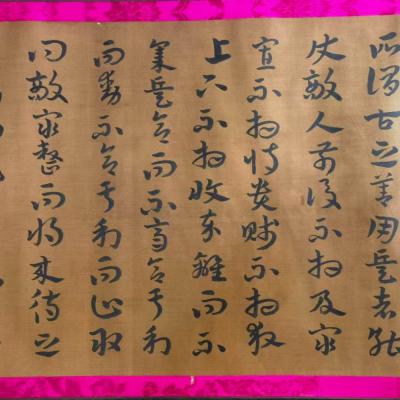 所謂古之善用兵者能
使敵人前後不相及眾
寡不相恃貴賤不相救
上下不相收卒離而不
集兵合而不齊合于利
而動不合于利而止敢
問敵眾整而將來待之